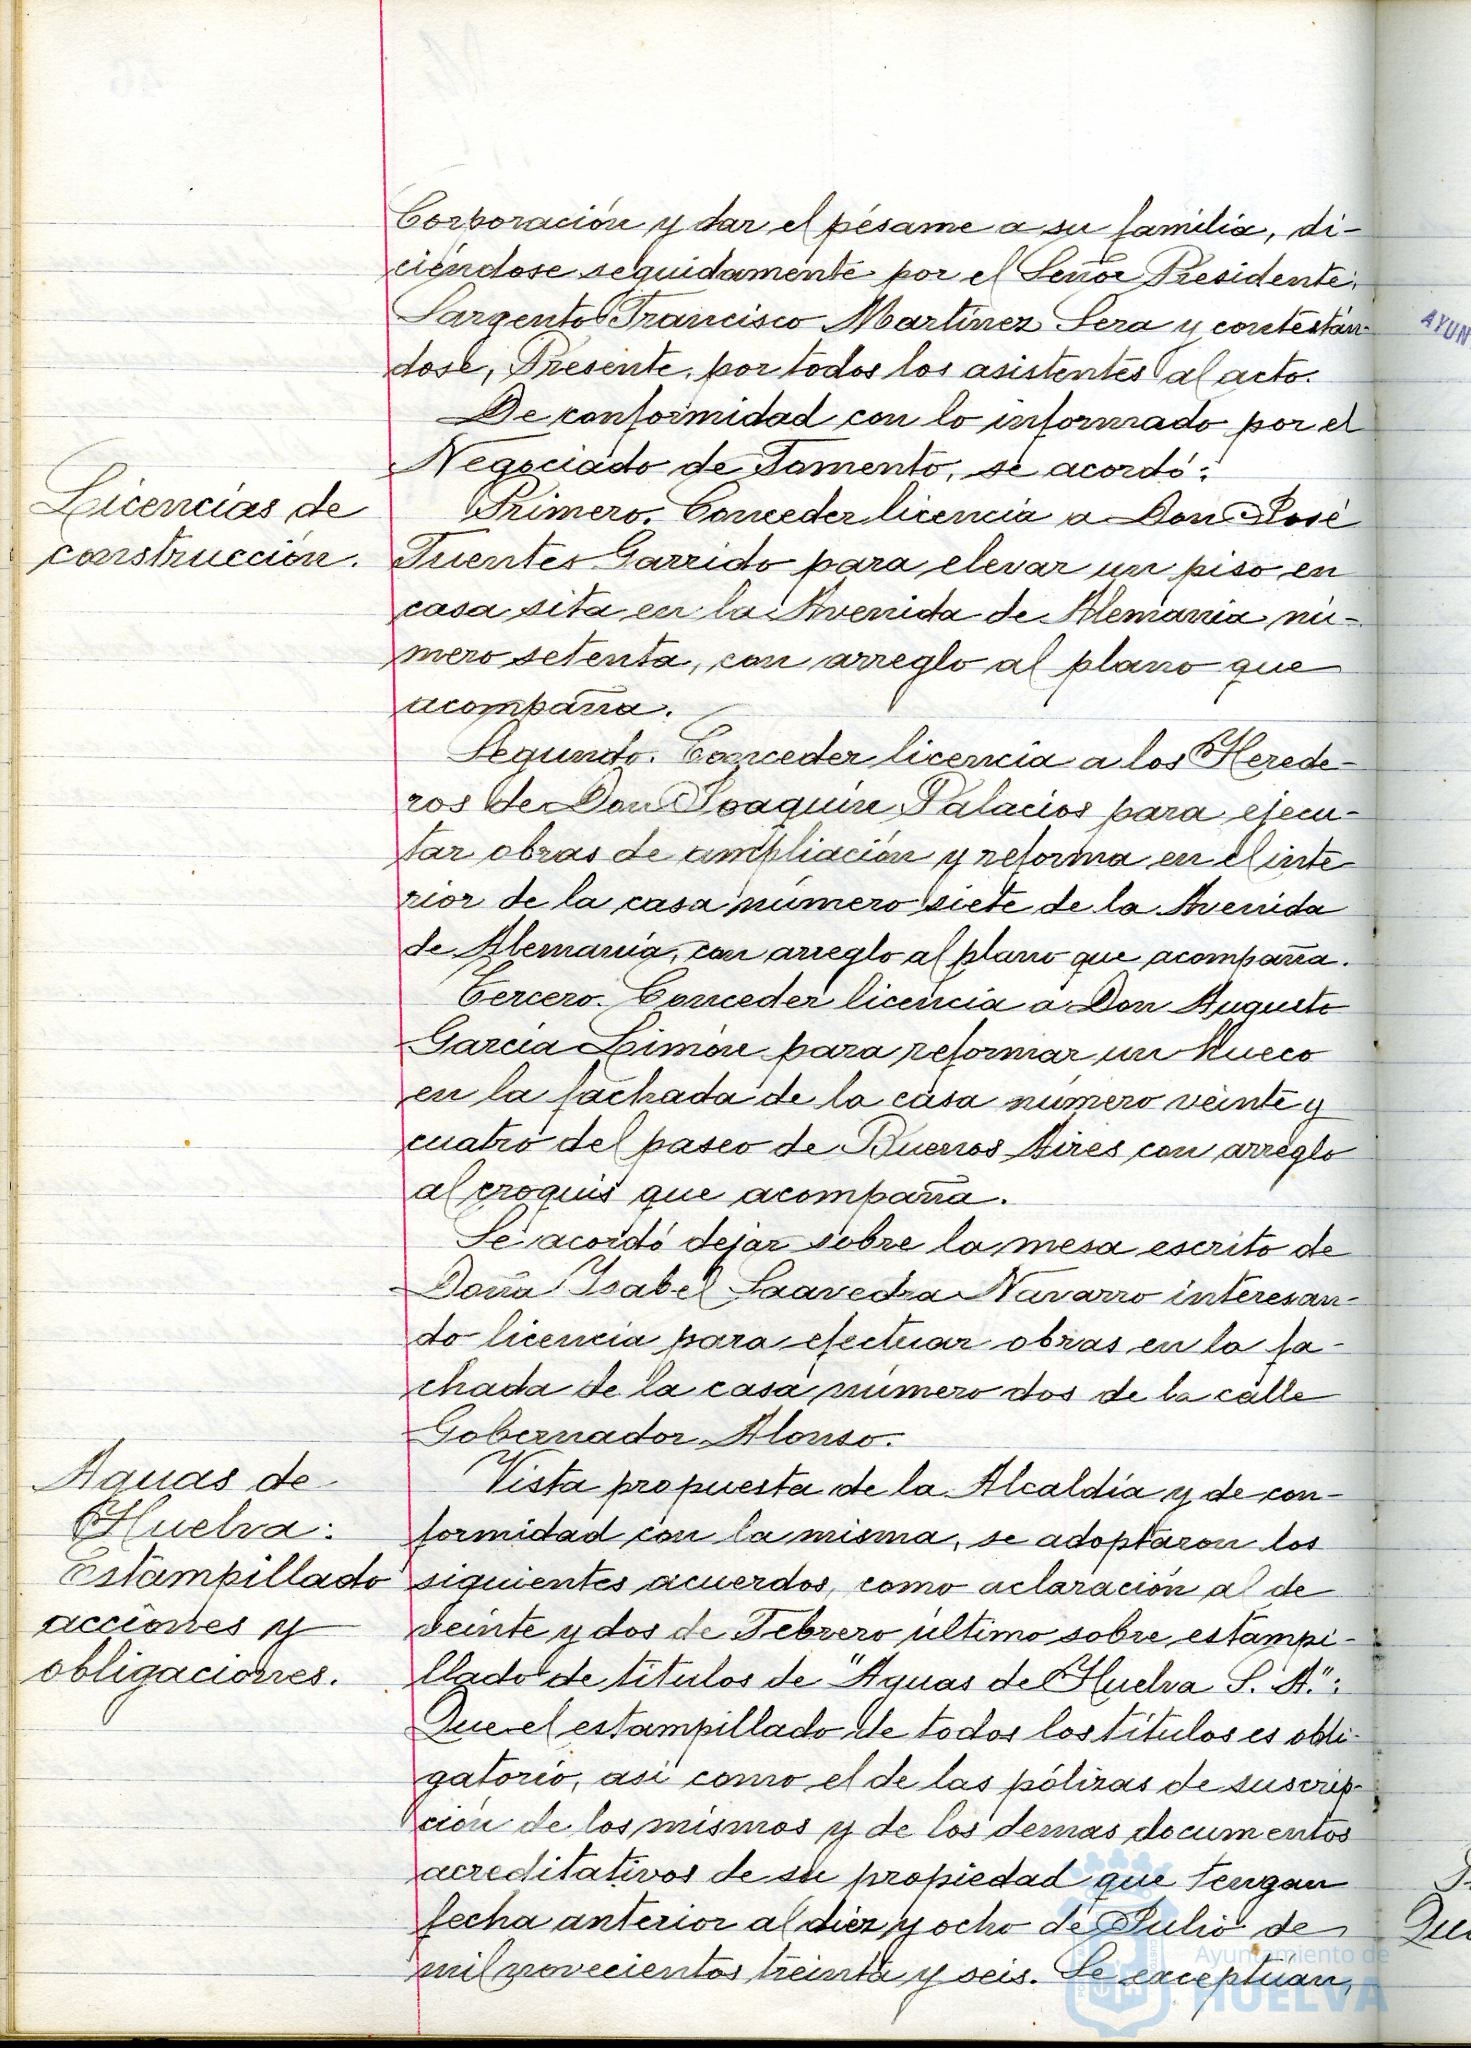 Corporación y dar el pésame a su familia, di-
ciéndose seguidamente por el Señor Presidente:
Sargento Francisco Martínez Sera y contestán-
dose, Presente, por todos los asistentes al acto.
De conformidad con lo informado por el
Negociado de Fomento, se acordó:
Licencias de
construcción.
Primero. Conceder licencia a Don José
Fuentes Garrido para elevar un piso en
casa sita en la Avenida de Alemania nú-
mero setenta, con arreglo al plano que
acompaña.
Segundo. Conceder licencia a los Herede-
ros de Don Joaquín Palacios para ejecu-
tar obras de ampliación y reforma en el inte-
rior de la casa número siete de la Avenida
de Alemania, con arreglo al plano que acompaña.
Tercero. Conceder licencia a Don Augusto
García Limón para reformar un hueco
en la fachada de la casa número veinte y
cuatro del paseo de Buenos Aires con arreglo
al croquis que acompaña.
Se acordó dejar sobre la mesa escrito de
Doña Isabel Saavedra Navarro interesan-
do licencia para efectuar obras en la fa-
chada de la casa número dos de la calle
Gobernador Alonso.
Aguas de
Huelva:
Estampillado
acciones y
obligaciones.
Vista propuesta de la Alcaldía y de con-
formidad con la misma, se adoptaron los
siguientes acuerdos, como aclaración al de
veinte y dos de Febrero último sobre estampi-
llado de títulos de "Aguas de Huelva S. A.":
Que el estampillado de todos los títulos es obli-
gatorio, así como el de las pólizas de suscrip-
ción de los mismos y de los demas documentos
acreditativos de su propiedad que tengan
fecha anterior al diez y ocho de Julio de
mil novecientos treinta y seis. Se exceptúan,
AYUN
Ayuntamiento de
HUELVA